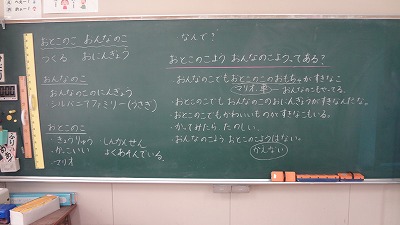 おとこのこ おんなのこ
つくる おにんぎょう
おんなのこ
おんなのこのにんぎょう
シルバニアファミリー(うさぎ)
おとこのこ
・きょうりゅう しんかんせん
・かっこいい よくあそんでいる。
・マリオ
なんで?
おとこのこよう おんなのこよう、てある?
・おんなのこでもおとこのこのおもちゃがすきなこ
マリオ、車 おんなのこもやってる。
・おとこのこでも おんなのこのおにんぎょうがすきなんだな。
・おとこのこでもかわいいものがすきなこもいる。
・かってみたら たのしい。
・おんなのこよう おとこのこようはない。
かんけいない